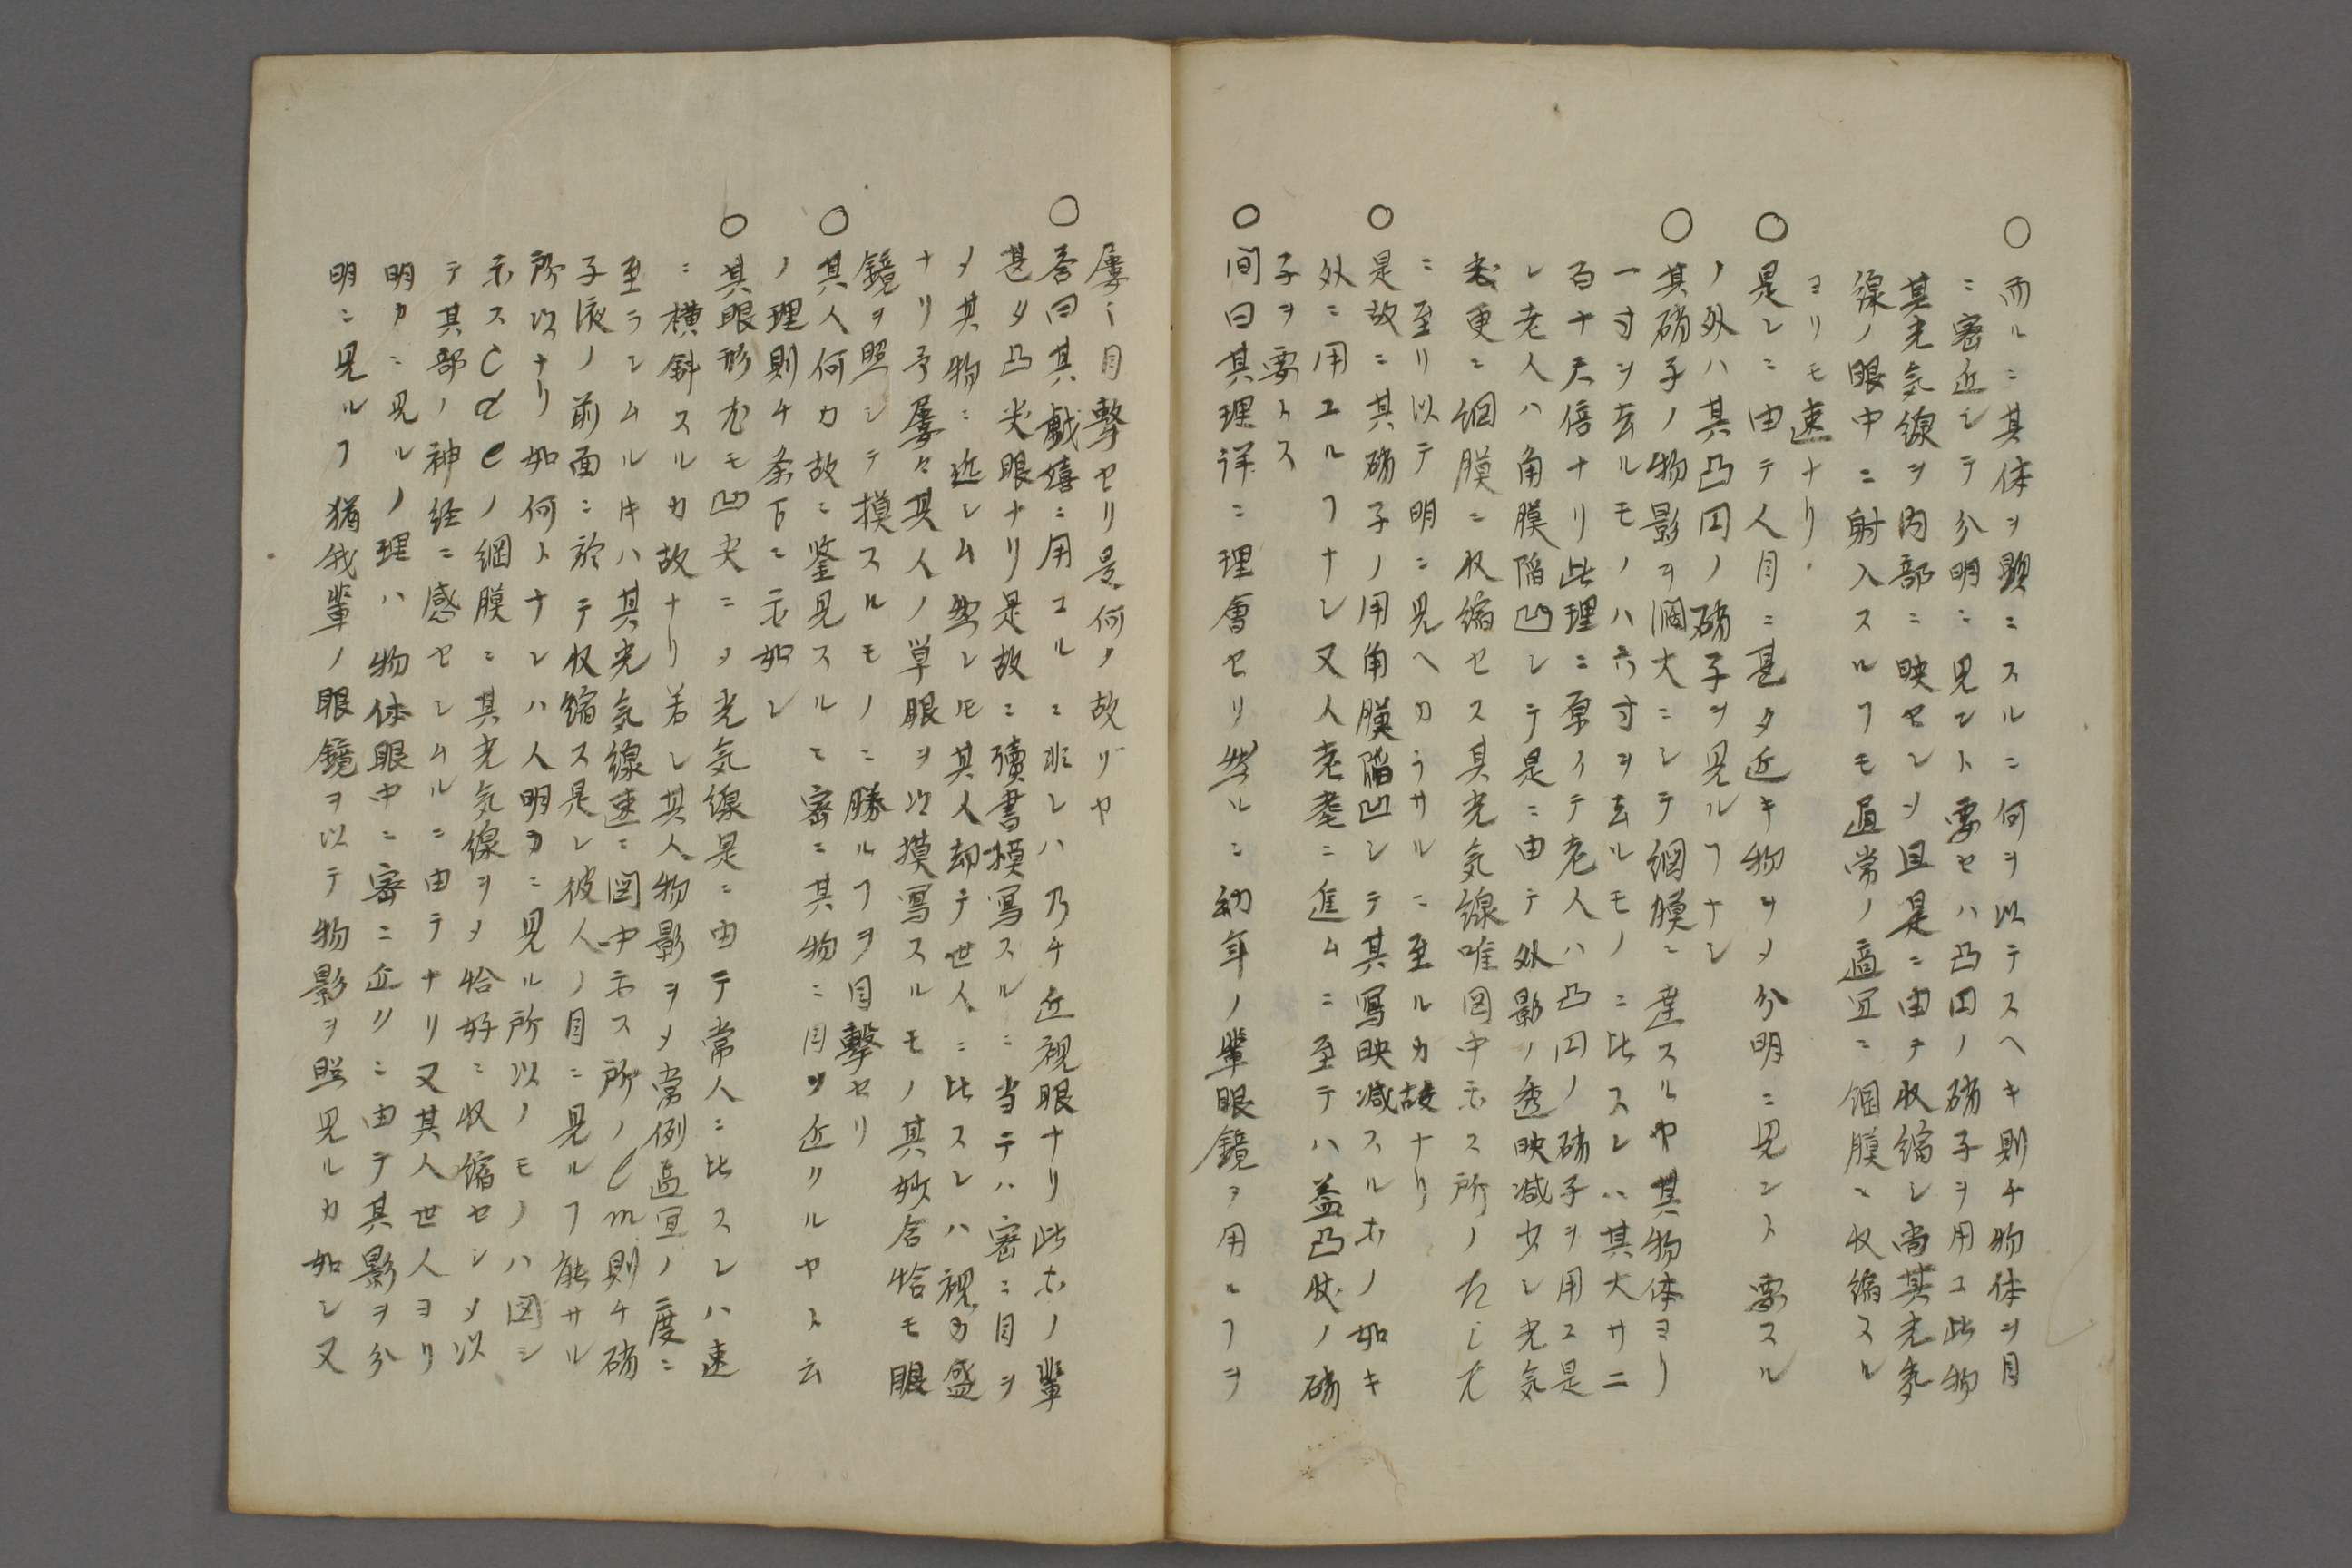 ○而ルニ其体ヲ顕ニスルニ何ヲ以テスヘキ則チ物体ヲ目
ニ密近シテ分明ニ見ント要セハ凸円ノ硝子ヲ用ユ此物
其光気線ヲ内部ニ映セシメ且是ニ由テ収縮シ尚其光気
線ノ眼中ニ射入スルヿモ通常ノ適宜ニ網膜ニ収縮スル
ヨリモ速ナリ
○是レニ由テ人目ニ甚タ近キ物ヲメ分明ニ見ント要スル
ノ外ハ其凸円ノ硝子ヲ見ルヿナシ
○其硝子ノ物影ヲ濶大ニシテ網膜ニ達スルヤ其物体ヨリ
一寸ヲ去ルモノハ六寸ヲ去ルモノニ比スレハ其大サ二
百十六倍ナリ此理ニ原イテ老人ハ凸円ノ硝子ヲ用ユ是
レ老人ハ角膜陥凹シテ是ニ由テ外影ノ透映減少シ光気
更ニ網膜ニ収縮セス其光気線唯図中示ス所ノ
ニ至リ以テ明ニ見ヘカラサルニ至ルカ故ナリ
○是故ニ其硝子ノ用角膜陥凹シテ其写映減スルホノ如キ
外ニ用ユルヿナシ又人老耄ニ進ムニ至テハ益凸状ノ硝
子ヲ要トス
○問曰其理詳ニ理會セリ然ルニ幼年ノ輩眼鏡ヲ用ルヿヲ
屢〻目撃セリ是何ノ故ゾヤ
○答曰其戯嬉ニ用ユルニ非レハ乃チ近視眼ナリ此ホノ輩
甚タ凸尖眼ナリ是故ニ讀書摸寫スルニ当テハ密ニ目ヲ
メ其物ニ近シム然レモ其人却テ世人ニ比スレハ視力盛
ナリ予屢々其人ノ単眼ヲ以摸寫スルモノ其妙合恰モ眼
鏡ヲ照シテ摸スルモノニ勝ルヿヲ目撃セリ
○其人何カ故ニ鑒見スルモ密ニ其物ニ目ヲ近クルヤト云
ノ理則チ条下ニ示如シ
○其眼形尤モ凹尖ニメ光気線是ニ由テ常人ニ比スレハ速
ニ横斜スルカ故ナリ若シ其人物影ヲメ常例適宜ノ度ニ
至ラシムルキハ其光気線速ニ図中示ス所ノlm則チ硝
子液ノ前面ニ於テ収縮ス是レ彼人ノ目ニ見ルヿ能サル
所以ナリ如何トナレハ人明カニ見ル所以ノモノハ図シ
示スcdeノ網膜ニ其光気線ヲメ恰好ニ収縮セシメ以
テ其部ノ神経ニ感セシムルニ由テナリ又其人世人ヨリ
明カニ見ルノ理ハ物体眼中ニ密ニ近クニ由テ其影ヲ分
明ニ見ルヿ猶我輩ノ眼鏡ヲ以テ物影ヲ照見ルカ如シ又